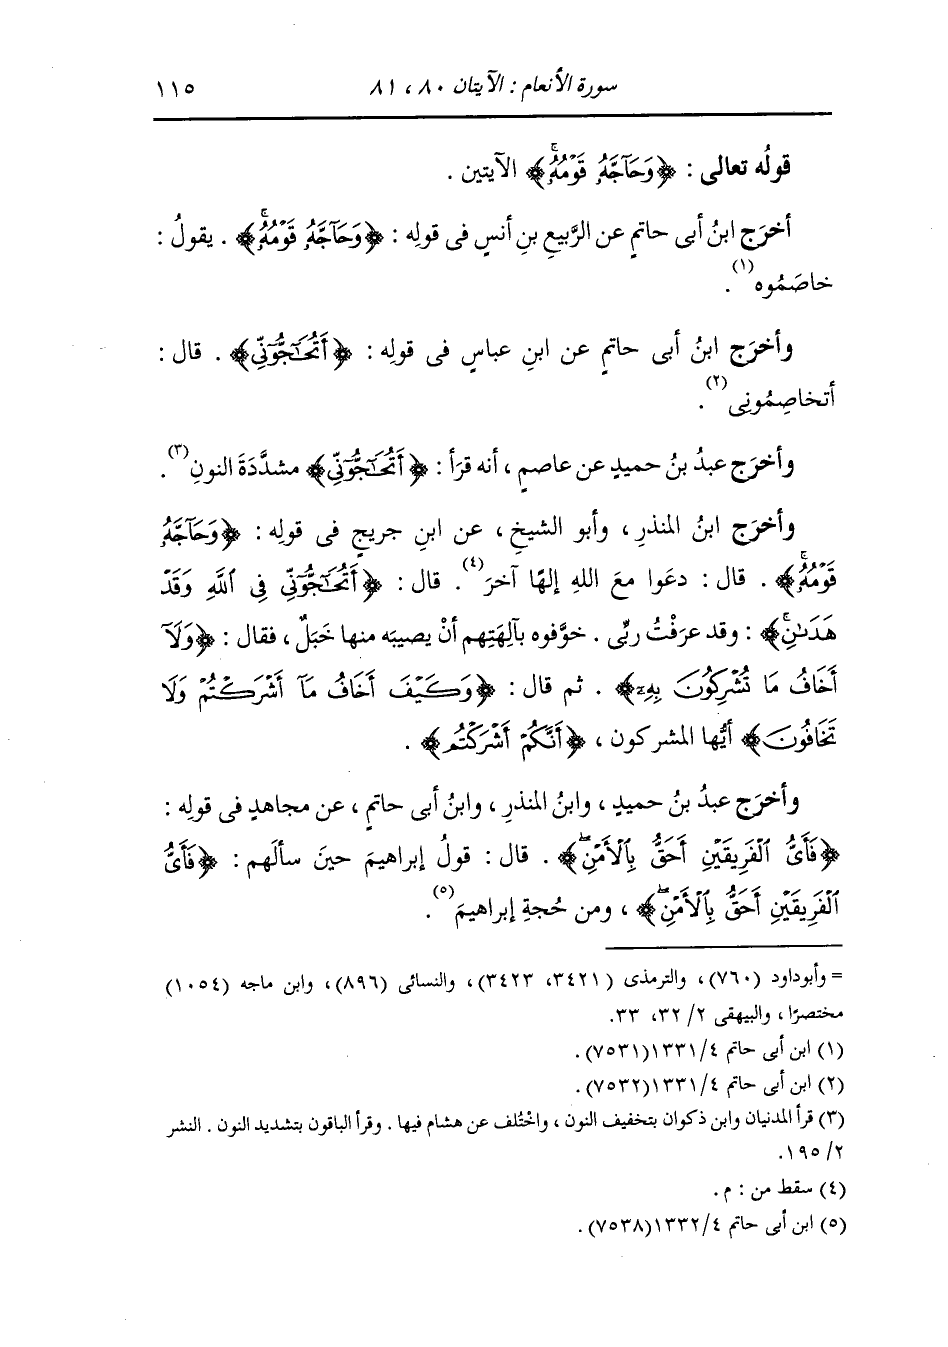 سورة الأنعام : الآيتان ٨٠ ، ٨١ ١١٥
قولُه تعالى : ﴿وَحَآجَّهُۥ قَوْمُهُۥۚ﴾ الآيتين .
أخرَج ابنُ أبى حاتمٍ عن الرَّبيعِ بنِ أنسٍ فى قولِه : ﴿وَحَآجَّهُۥ قَوْمُهُۥۚ﴾ . يقولُ :
خاصَمُوه(١) .
وأخرَج ابنُ أبى حاتمٍ عن ابنِ عباسٍ فى قولِه : ﴿أَتُحَٰٓجُّوٓنِّي﴾ . قال :
أتخاصِمُونِى(٢) .
وأخرَج عبدُ بنُ حميدٍ عن عاصمٍ ، أنه قرَأ : ﴿أَتُحَٰٓجُّوٓنِّي﴾ مشدَّدَةَ النونِ(٣) .
وأخرَج ابنُ المنذرِ ، وأبو الشيخِ ، عن ابنِ جريجٍ فى قولِه : ﴿وَحَآجَّهُۥ
قَوْمُهُۥۚ﴾ . قال : دعَوا معَ اللهِ إلهًا آخرَ(٤) . قال : ﴿أَتُحَٰٓجُّوٓنِّي فِي ٱللَّهِ وَقَدْ
هَدَىٰنِۚ﴾ : وقد عرَفْتُ ربِّى . خوَّفوه بآلِهَتِهم أنْ يصيبَه منها خَبَلٌ ، فقال : ﴿وَلَآ
أَخَافُ مَا تُشْرِكُونَ بِهِۦٓ﴾ . ثم قال : ﴿وَكَيْفَ أَخَافُ مَآ أَشْرَكْتُمْ وَلَا
تَخَافُونَ﴾ أيُّها المشركون ، ﴿أَنَّكُمْ أَشْرَكْتُم﴾ .
وأخرَج عبدُ بنُ حميدٍ ، وابنُ المنذرِ ، وابنُ أبى حاتمٍ ، عن مجاهدٍ فى قولِه :
﴿فَأَيُّ ٱلْفَرِيقَيْنِ أَحَقُّ بِٱلْأَمْنِۖ﴾ . قال : قولُ إبراهيمَ حينَ سألَهم : ﴿فَأَيُّ
ٱلْفَرِيقَيْنِ أَحَقُّ بِٱلْأَمْنِۖ﴾ ، ومن حُجةِ إبراهيمَ(٥) .
= وأبوداود (٧٦٠) ، والترمذى (٣٤٢١، ٣٤٢٣) ، والنسائى (٨٩٦) ، وابن ماجه (١٠٥٤)
مختصرًا ، والبيهقى ٢/ ٣٢، ٣٣.
(١) ابن أبى حاتم ٤/ ١٣٣١(٧٥٣١) .
(٢) ابن أبى حاتم ٤/ ١٣٣١(٧٥٣٢) .
(٣) قرأ المدنيان وابن ذكوان بتخفيف النون ، واختُلف عن هشام فيها . وقرأ الباقون بتشديد النون . النشر
٢/ ١٩٥.
(٤) سقط من : م .
(٥) ابن أبى حاتم ٤/ ١٣٣٢(٧٥٣٨) .